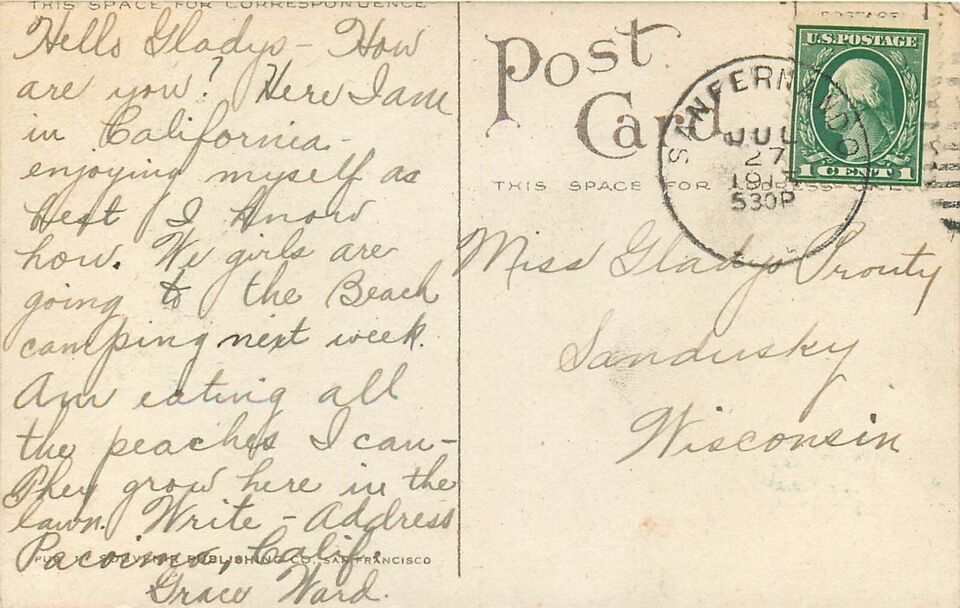 THIS SPACE FOR CORRESPONDENCE
Hello Gladys - How
are you? Here I am
in California -
enjoying myself as
best I know
how. We girls are
going to the Beach
camping next week.
Am eating all
the peaches I can -
They grow here in the
lawn. Write - Address
Pacoima, Calif.
Grace Ward.
PUBLISHING CO. SAN FRANCISCO
Post
Card
THIS SPACE FOR ADDRESS ONLY
SAN FERNANDO
JUL
27
530P
POSTAGE
U.S. POSTAGE
1 CENT 1
Miss Gladys Prouty
Sandusky
Wisconsin